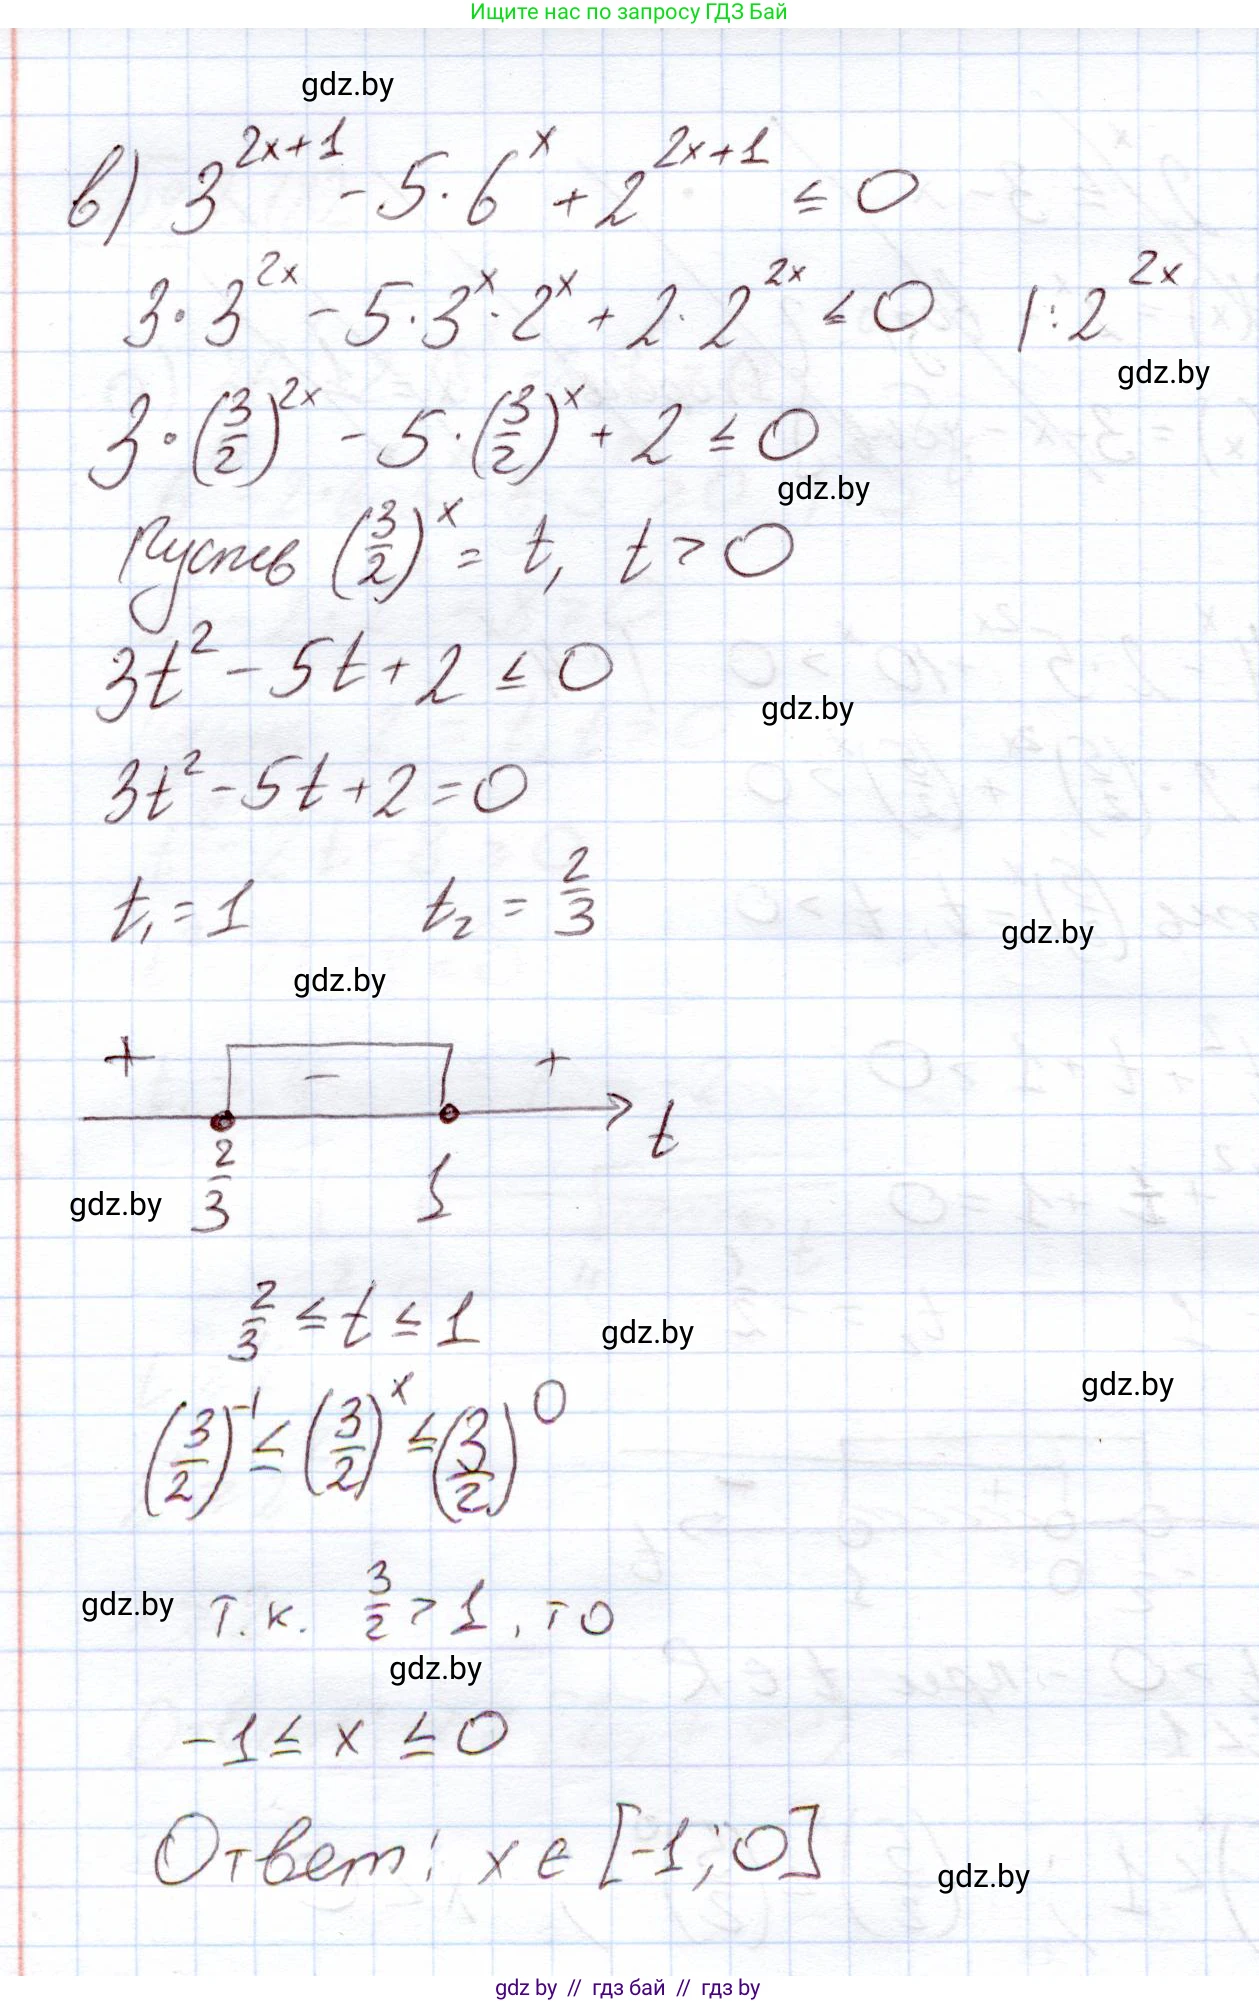 Ищите нас по запросу ГДЗ Бай
gdz.by
в) 3^(2x+1) - 5·6^x + 2^(2x+1) ≤ 0
3·3^(2x) - 5·3^x·2^x + 2·2^(2x) ≤ 0 |:2^(2x)
gdz.by
3·(3/2)^(2x) - 5·(3/2)^x + 2 ≤ 0
gdz.by
Пусть (3/2)^x = t, t > 0
3t² - 5t + 2 ≤ 0
gdz.by
3t² - 5t + 2 = 0
t₁ = 1 t₂ = 2/3
gdz.by
gdz.by
+ - +
t
2/3 1
gdz.by
2/3 ≤ t ≤ 1
gdz.by
gdz.by
(3/2)^(-1) ≤ (3/2)^x ≤ (3/2)^0
gdz.by
т.к. 3/2 > 1, то
gdz.by
-1 ≤ x ≤ 0
Ответ: x ∈ [-1; 0]
gdz.by
gdz by // гдз бай // гдз by